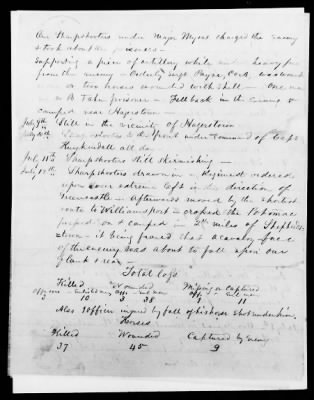 Our Sharpshooters under Major Myers charged the enemy
& took about prisoners -
Supporting a piece of artillery while under heavy fire
from the enemy - Orderly Sergt Payne, Co K was wounded
one or two horses wounded with shell - One man
Co B taken prisoner - Fell back in the evening &
camped near Hagerstown -
July 9th Still in the vicinity of Hagerstown
July 10th Sharpshooters to the front under command of Capt
Kuykendall all day
July 11th Sharpshooters still skirmishing -
July 12th Sharpshooters drawn in - Regiment ordered
upon some extreme left in the direction of
- afterwards moved by the shortest
route to Williamsport - crossed the Potomac
& camped in 2 miles of Shepherds-
town - it being feared that a cavalry force
of the enemy was about to fall upon our
flank & rear -
Total loss
Killed Wounded Missing or captured
officers enlisted men off enl men off enl men
2 10 3 38 11
Also 1 officer injured by fall of his horse shot under him
Horses
Killed Wounded Captured by enemy
37 45 9